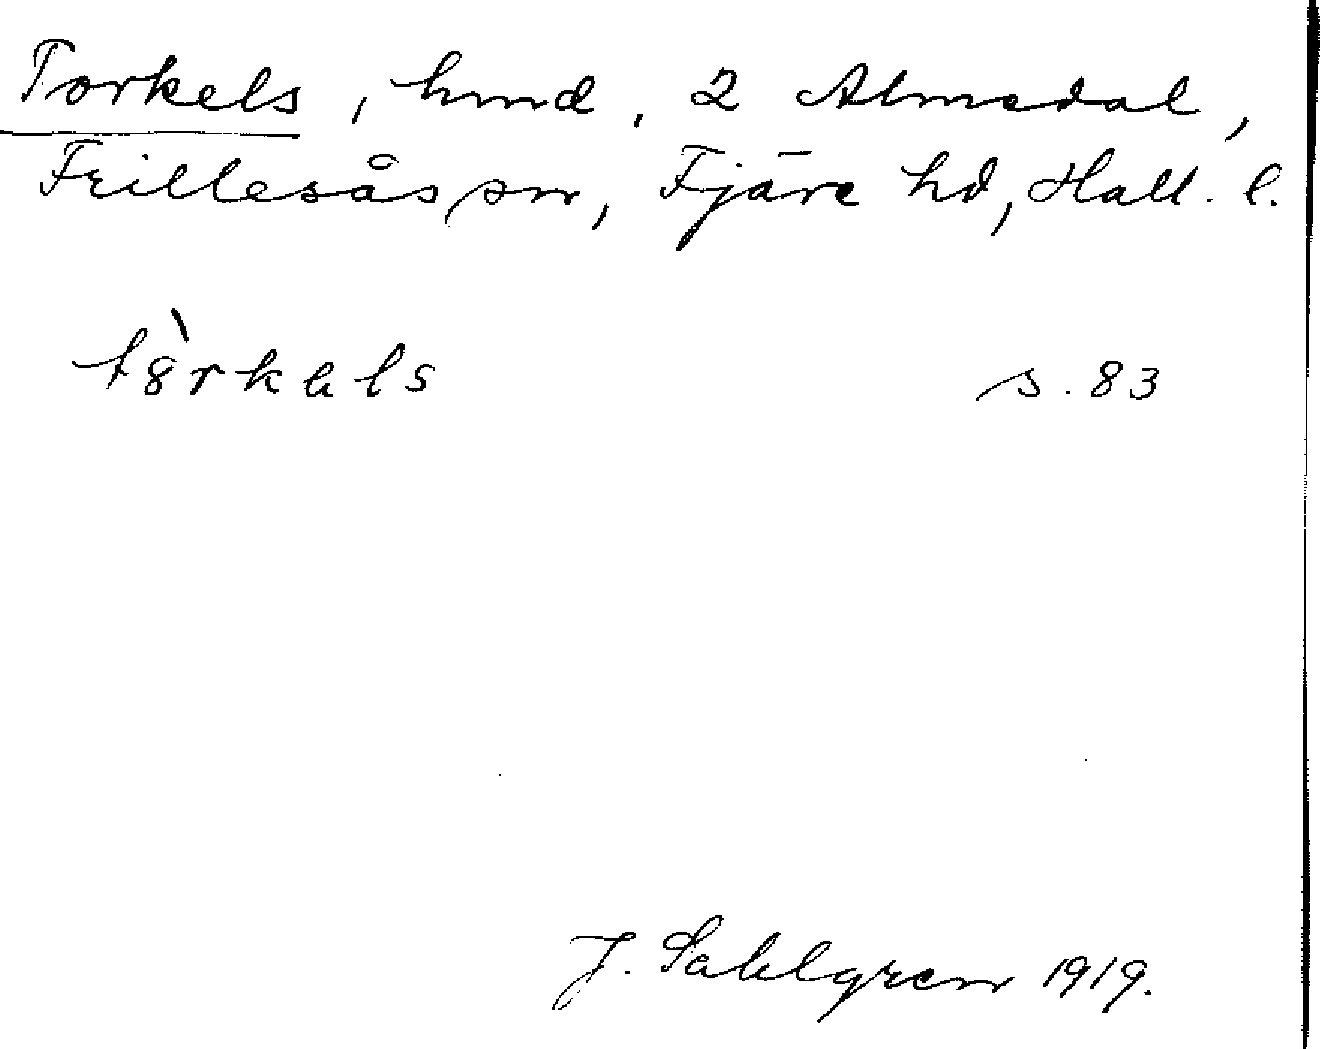 Torkels, hmd, 2 Almedal,
Frillesås sn, Fjäre hd, Hall. l.
s. 83
J. Sahlgren 1919.